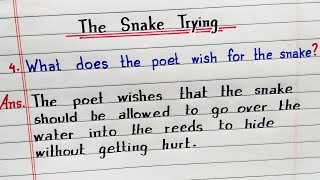 The Snake Trying
4. What does the poet wish for the snake?
Ans. The poet wishes that the snake
should be allowed to go over the
water into the reeds to hide
without getting hurt.